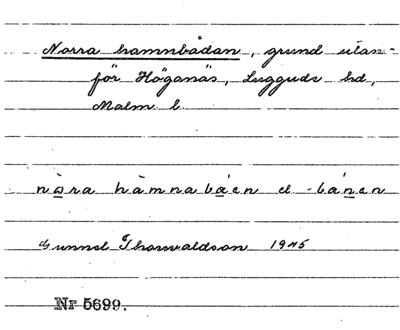 Norra hamnbådan, grund utan-
för Höganäs, Luggude hd,
Malm. l.
nòra hàmnabåen el. -bånen
Gunnel Thorvaldson 1945
Nr 5699.